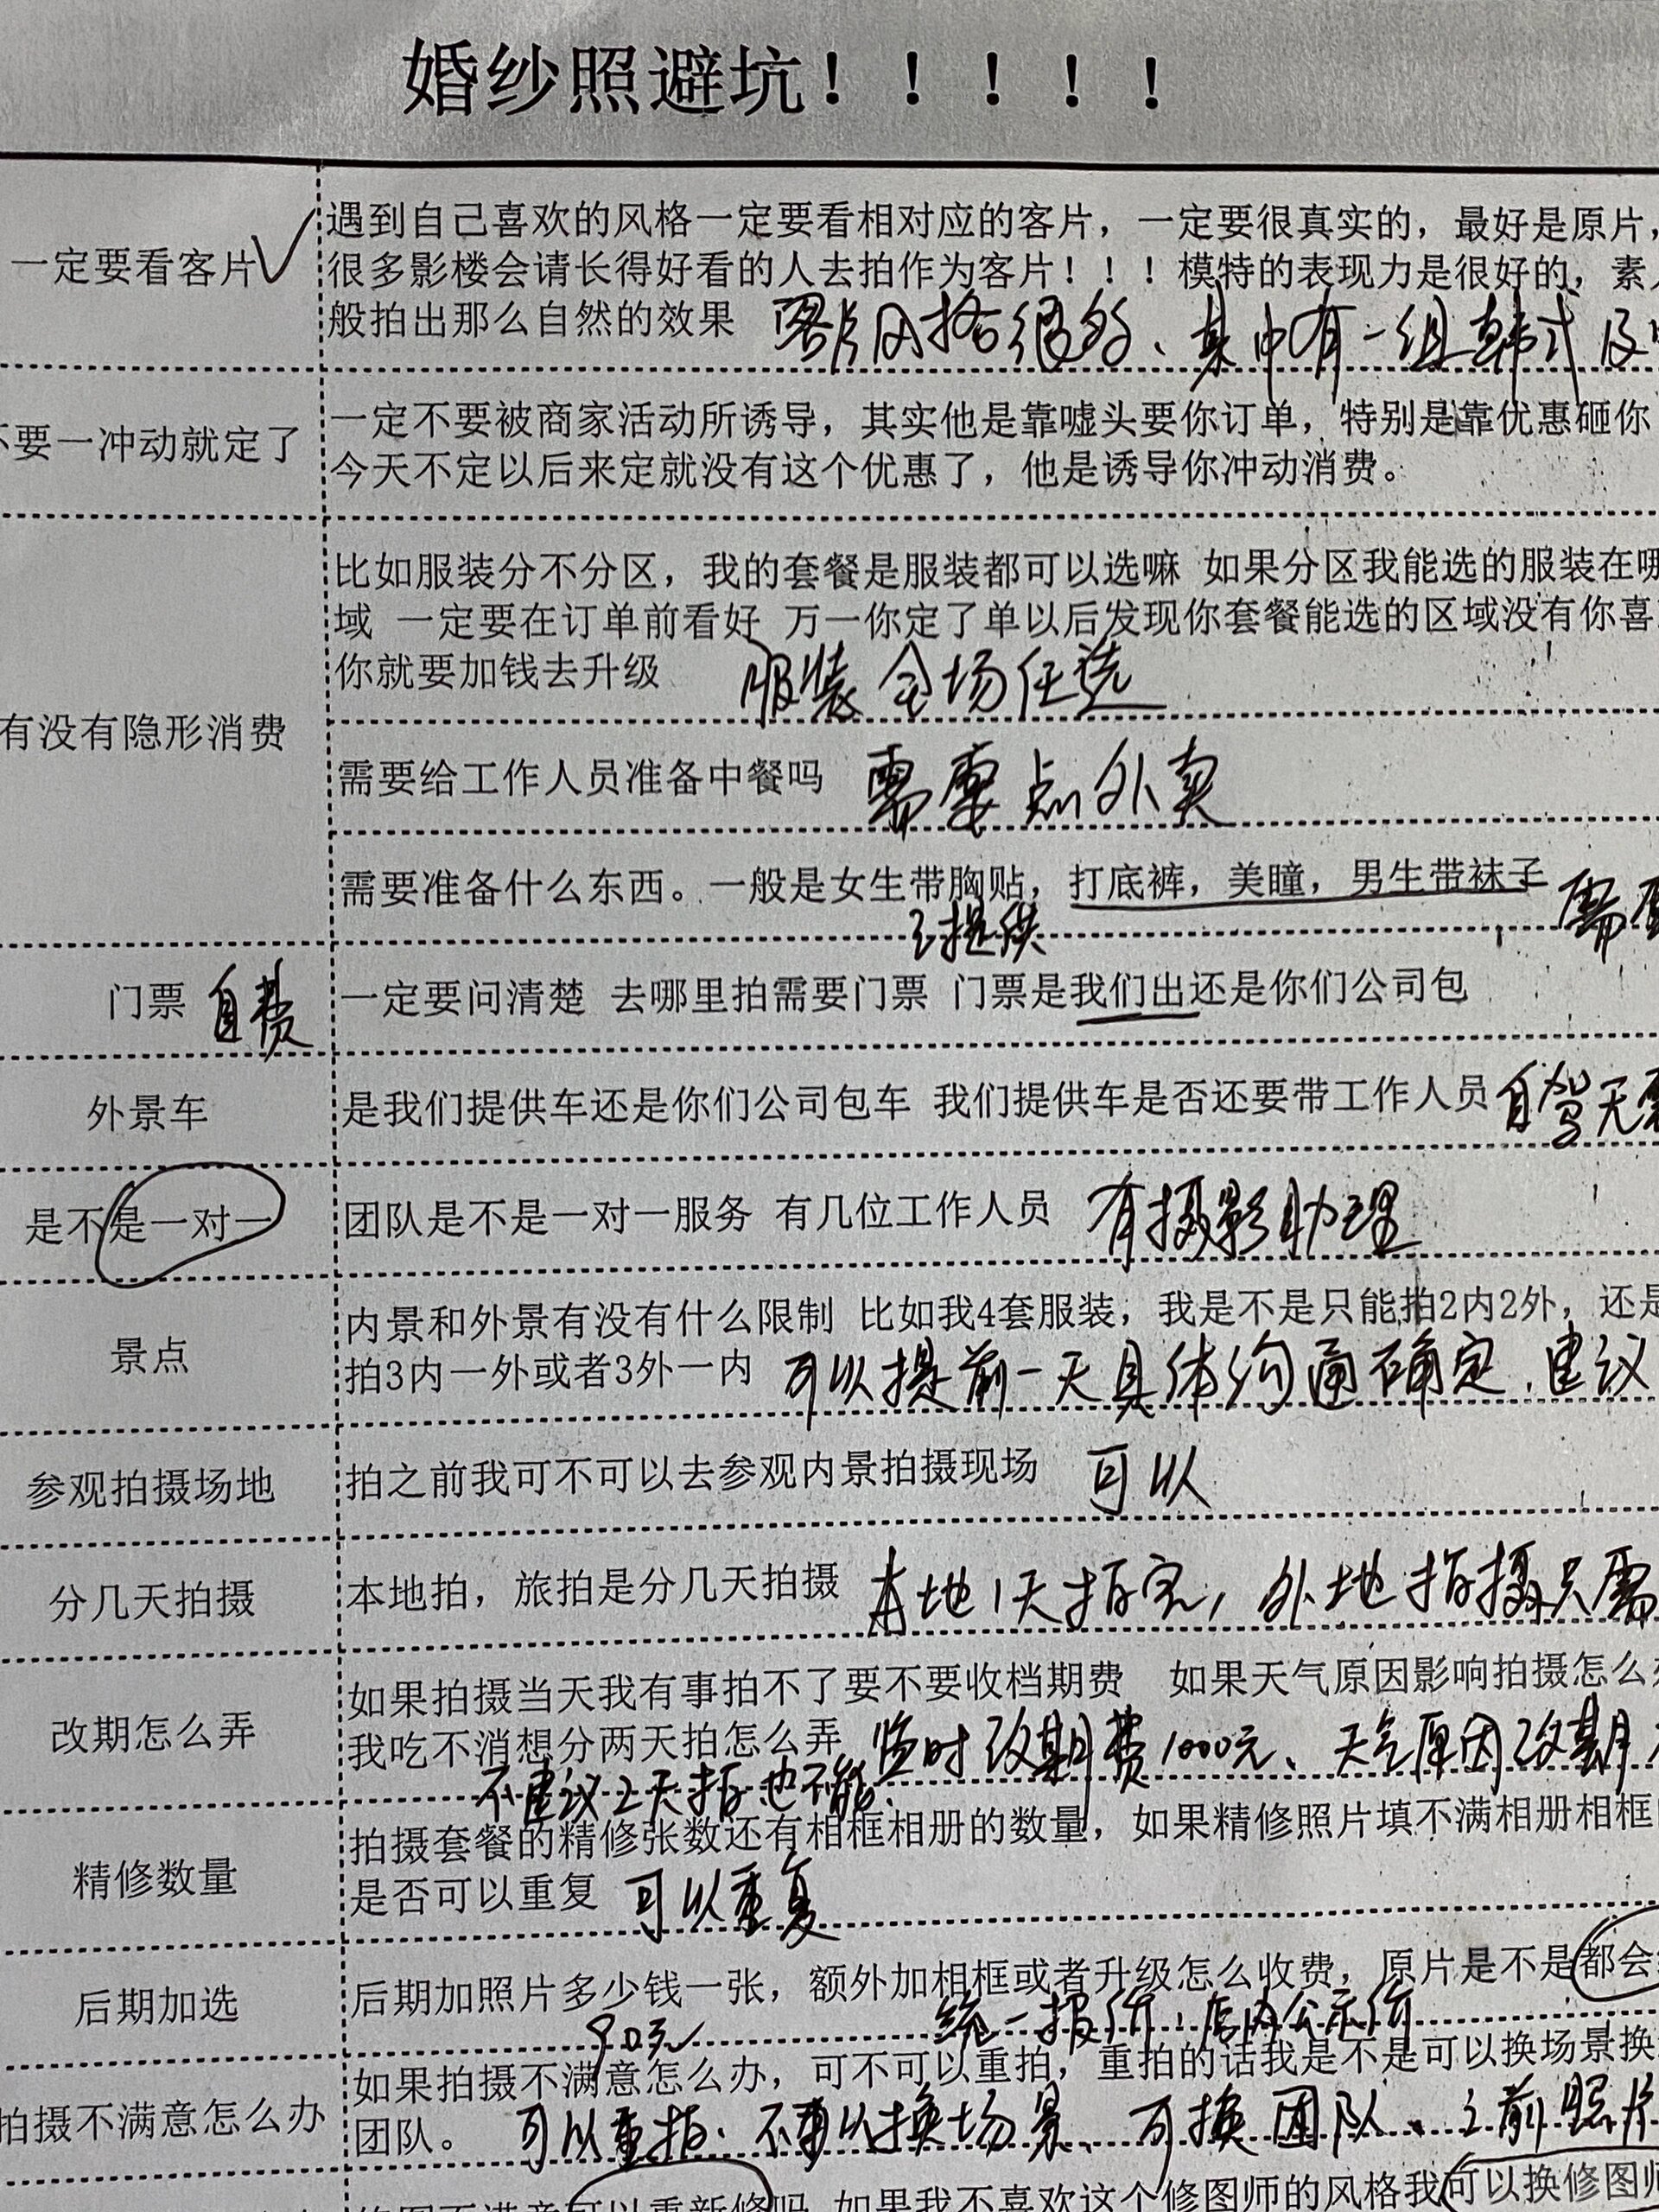 婚纱照避坑！！！！！
一定要看客片
遇到自己喜欢的风格一定要看相对应的客片，一定要很真实的，最好是原片，
很多影楼会请长得好看的人去拍作为客片！！！模特的表现力是很好的，素
般拍出那么自然的效果 客片风格很多、其中有一组韩式及
要一冲动就定了
一定不要被商家活动所诱导，其实他是靠嘘头要你订单，特别是靠优惠砸你
今天不定以后来定就没有这个优惠了，他是诱导你冲动消费。
有没有隐形消费
比如服装分不分区，我的套餐是服装都可以选嘛 如果分区我能选的服装在哪
域 一定要在订单前看好 万一你定了单以后发现你套餐能选的区域没有你喜
你就要加钱去升级 服装全场任选
需要给工作人员准备中餐吗 需要点外卖
需要准备什么东西。一般是女生带胸贴，打底裤，美瞳，男生带袜子 需要
提供
门票 自费
一定要问清楚 去哪里拍需要门票 门票是我们出还是你们公司包
外景车
是我们提供车还是你们公司包车 我们提供车是否还要带工作人员 自驾无需
是不是一对一
团队是不是一对一服务 有几位工作人员 有摄影助理
景点
内景和外景有没有什么限制 比如我4套服装，我是不是只能拍2内2外，还是
拍3内一外或者3外一内 可以提前一天具体沟通确定.建议
参观拍摄场地
拍之前我可不可以去参观内景拍摄现场 可以
分几天拍摄
本地拍，旅拍是分几天拍摄 本地1天拍完，外地拍摄只需
改期怎么弄
如果拍摄当天我有事拍不了要不要收档期费 如果天气原因影响拍摄怎么
我吃不消想分两天拍怎么弄 临时改期费1000元、天气原因改期
不建议2天拍也不能.
精修数量
拍摄套餐的精修张数还有相框相册的数量，如果精修照片填不满相册相框
是否可以重复 可以重复
后期加选
后期加照片多少钱一张，额外加相框或者升级怎么收费，原片是不是都会
90元 统一报价，店内公示价
拍摄不满意怎么办
如果拍摄不满意怎么办，可不可以重拍，重拍的话我是不是可以换场景换
团队。 可以重拍.不可以换场景、可换团队、之前照片
修图不满意可以重新修吗 如果我不喜欢这个修图师的风格我可以换修图师